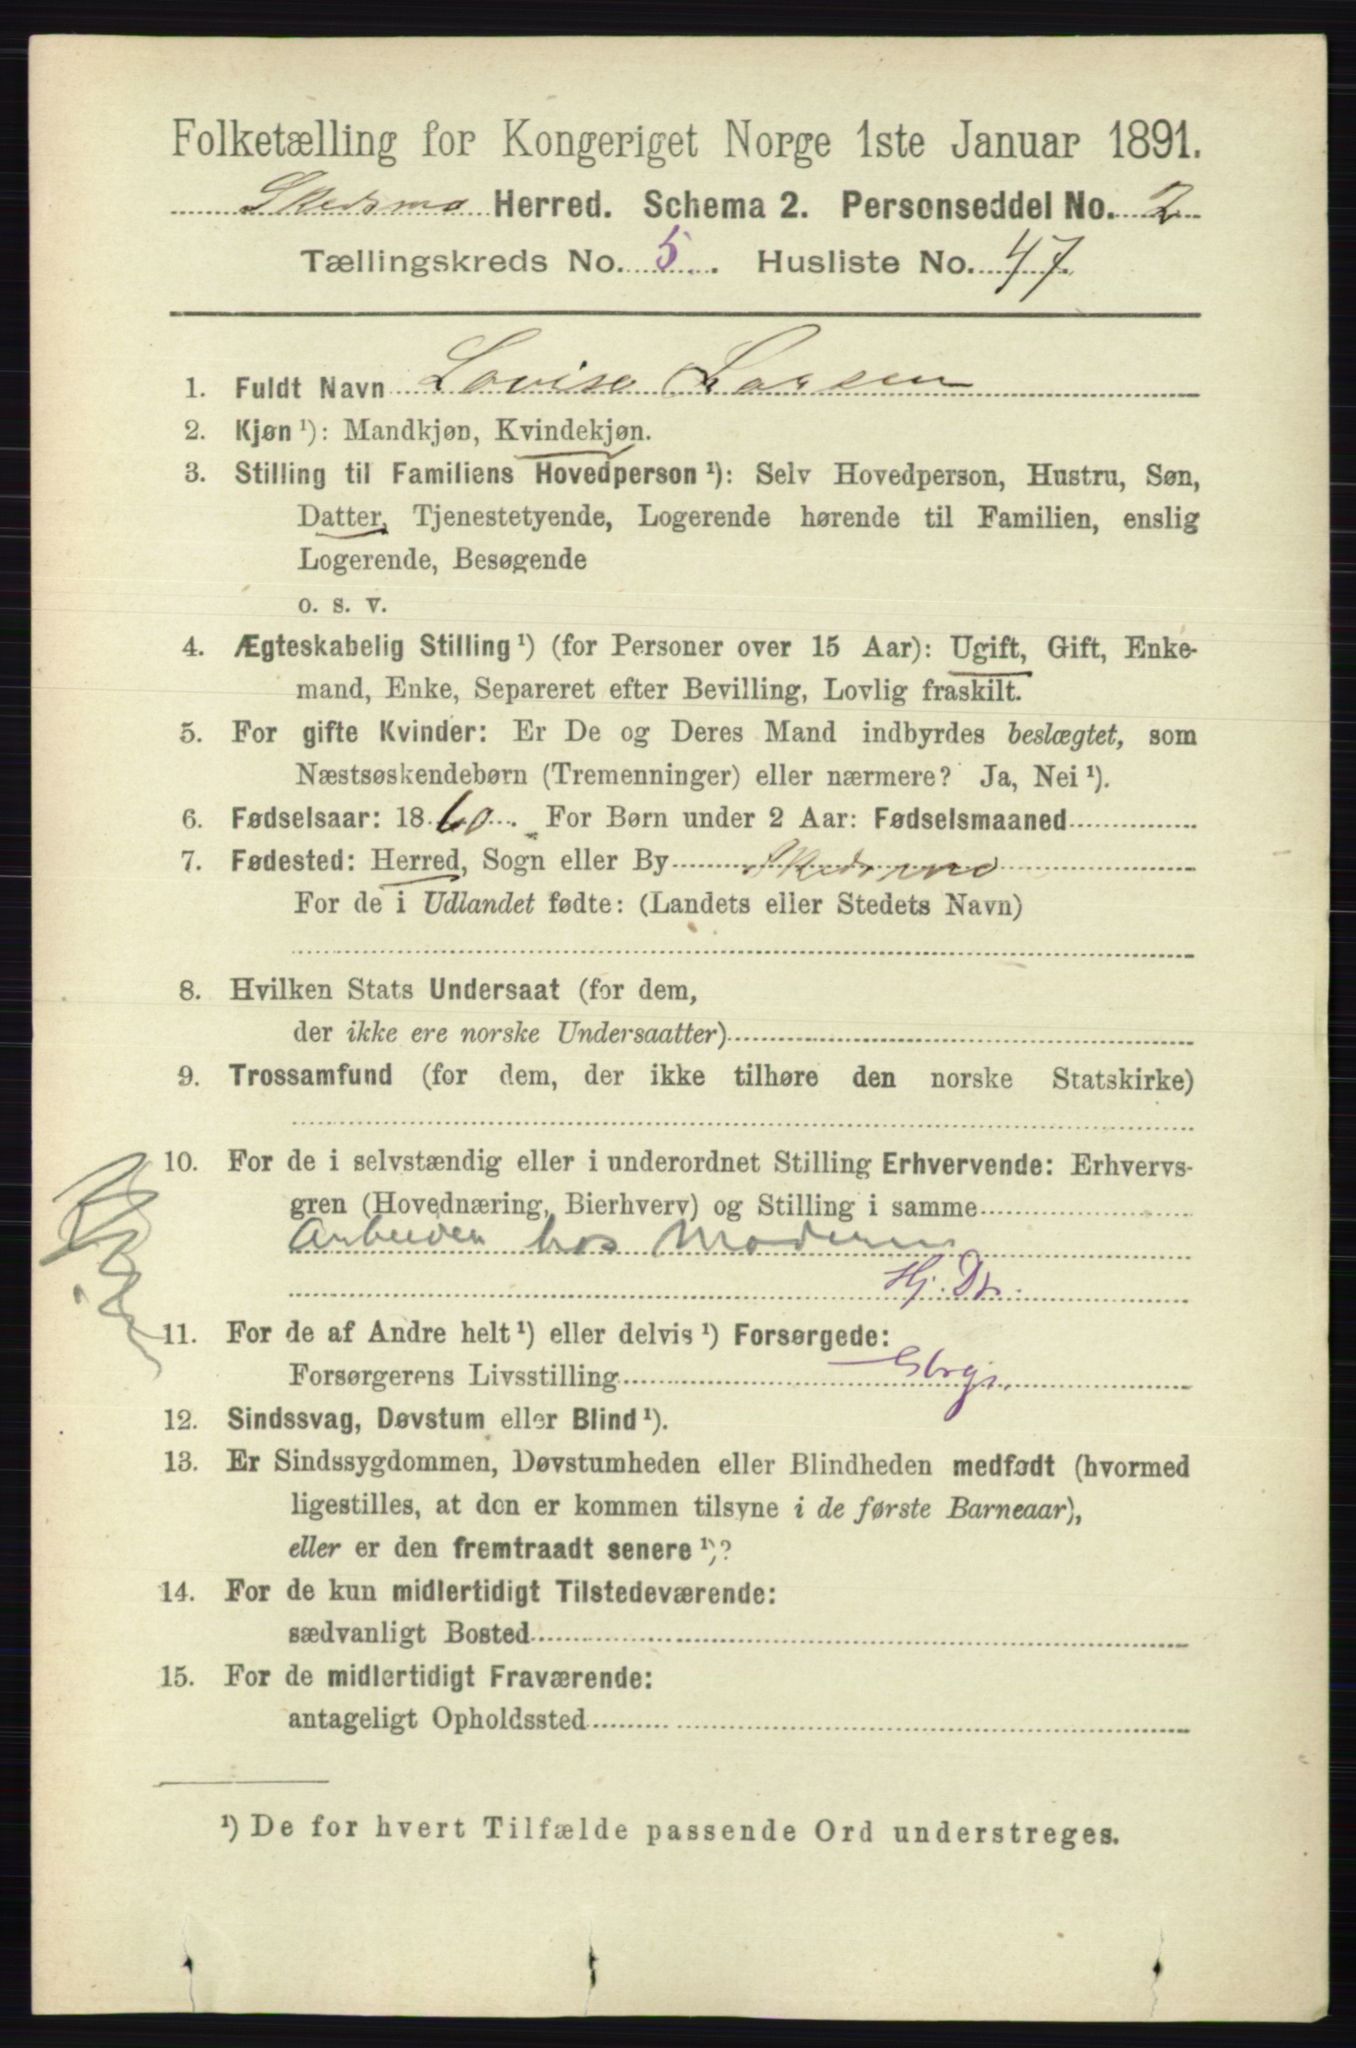 Folketælling for Kongeriget Norge 1ste Januar 1891.
Skedsmo Herred. Schema 2. Personseddel No. 2
Tællingskreds No. 5. Husliste No. 47.
1. Fuldt Navn Lovise Larsen
2. Kjøn ¹): Mandkjøn, Kvindekjøn.
3. Stilling til Familiens Hovedperson ¹): Selv Hovedperson, Hustru, Søn,
Datter, Tjenestetyende, Logerende hørende til Familien, enslig
Logerende, Besøgende
o. s. v.
4. Ægteskabelig Stilling ¹) (for Personer over 15 Aar): Ugift, Gift, Enke-
mand, Enke, Separeret efter Bevilling, Lovlig fraskilt.
5. For gifte Kvinder: Er De og Deres Mand indbyrdes beslægtet, som
Næstsøskendebørn (Tremenninger) eller nærmere? Ja, Nei ¹).
6. Fødselsaar: 1860. For Børn under 2 Aar: Fødselsmaaned
7. Fødested: Herred, Sogn eller By Skedsmo
For de i Udlandet fødte: (Landets eller Stedets Navn)
8. Hvilken Stats Undersaat (for dem,
der ikke ere norske Undersaatter)
9. Trossamfund (for dem, der ikke tilhøre den norske Statskirke)
10. For de i selvstændig eller i underordnet Stilling Erhvervende: Erhvervs-
gren (Hovednæring, Bierhverv) og Stilling i samme
Arbeider hos Moderen
Hj. Dtr.
11. For de af Andre helt ¹) eller delvis ¹) Forsørgede:
Forsørgerens Livsstilling
12. Sindssvag, Døvstum eller Blind ¹).
13. Er Sindssygdommen, Døvstumheden eller Blindheden medfødt (hvormed
ligestilles, at den er kommen tilsyne i de første Barneaar),
eller er den fremtraadt senere ¹)?
14. For de kun midlertidigt Tilstedeværende:
sædvanligt Bosted
15. For de midlertidigt Fraværende:
antageligt Opholdssted
¹) De for hvert Tilfælde passende Ord understreges.